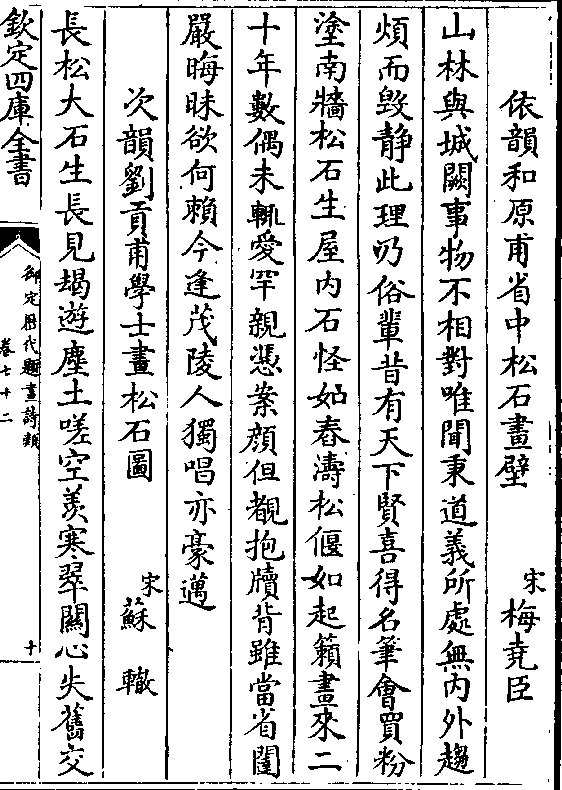 依韻和原甫省中松石畫壁
宋
梅堯臣
山林與城闕事物不相對唯聞秉道義所處無內外趨
煩而毀静此理乃俗輩昔有天下賢喜得名筆會買粉
塗南牆松石生屋內石怪如舂濤松偃如起籟畫來二
十年數偶未輒愛罕親憑案顔但覩抱牘背雖當省闥
嚴晦昧欲何賴今逢茂陵人獨唱亦豪邁
次韻劉貢甫學士畫松石圖
宋
蘇轍
長松大石生長見朅遊塵土嗟空羨寒翠關心失舊交
欽定四庫全書
御定歷代題畫詩類
卷七十二
十